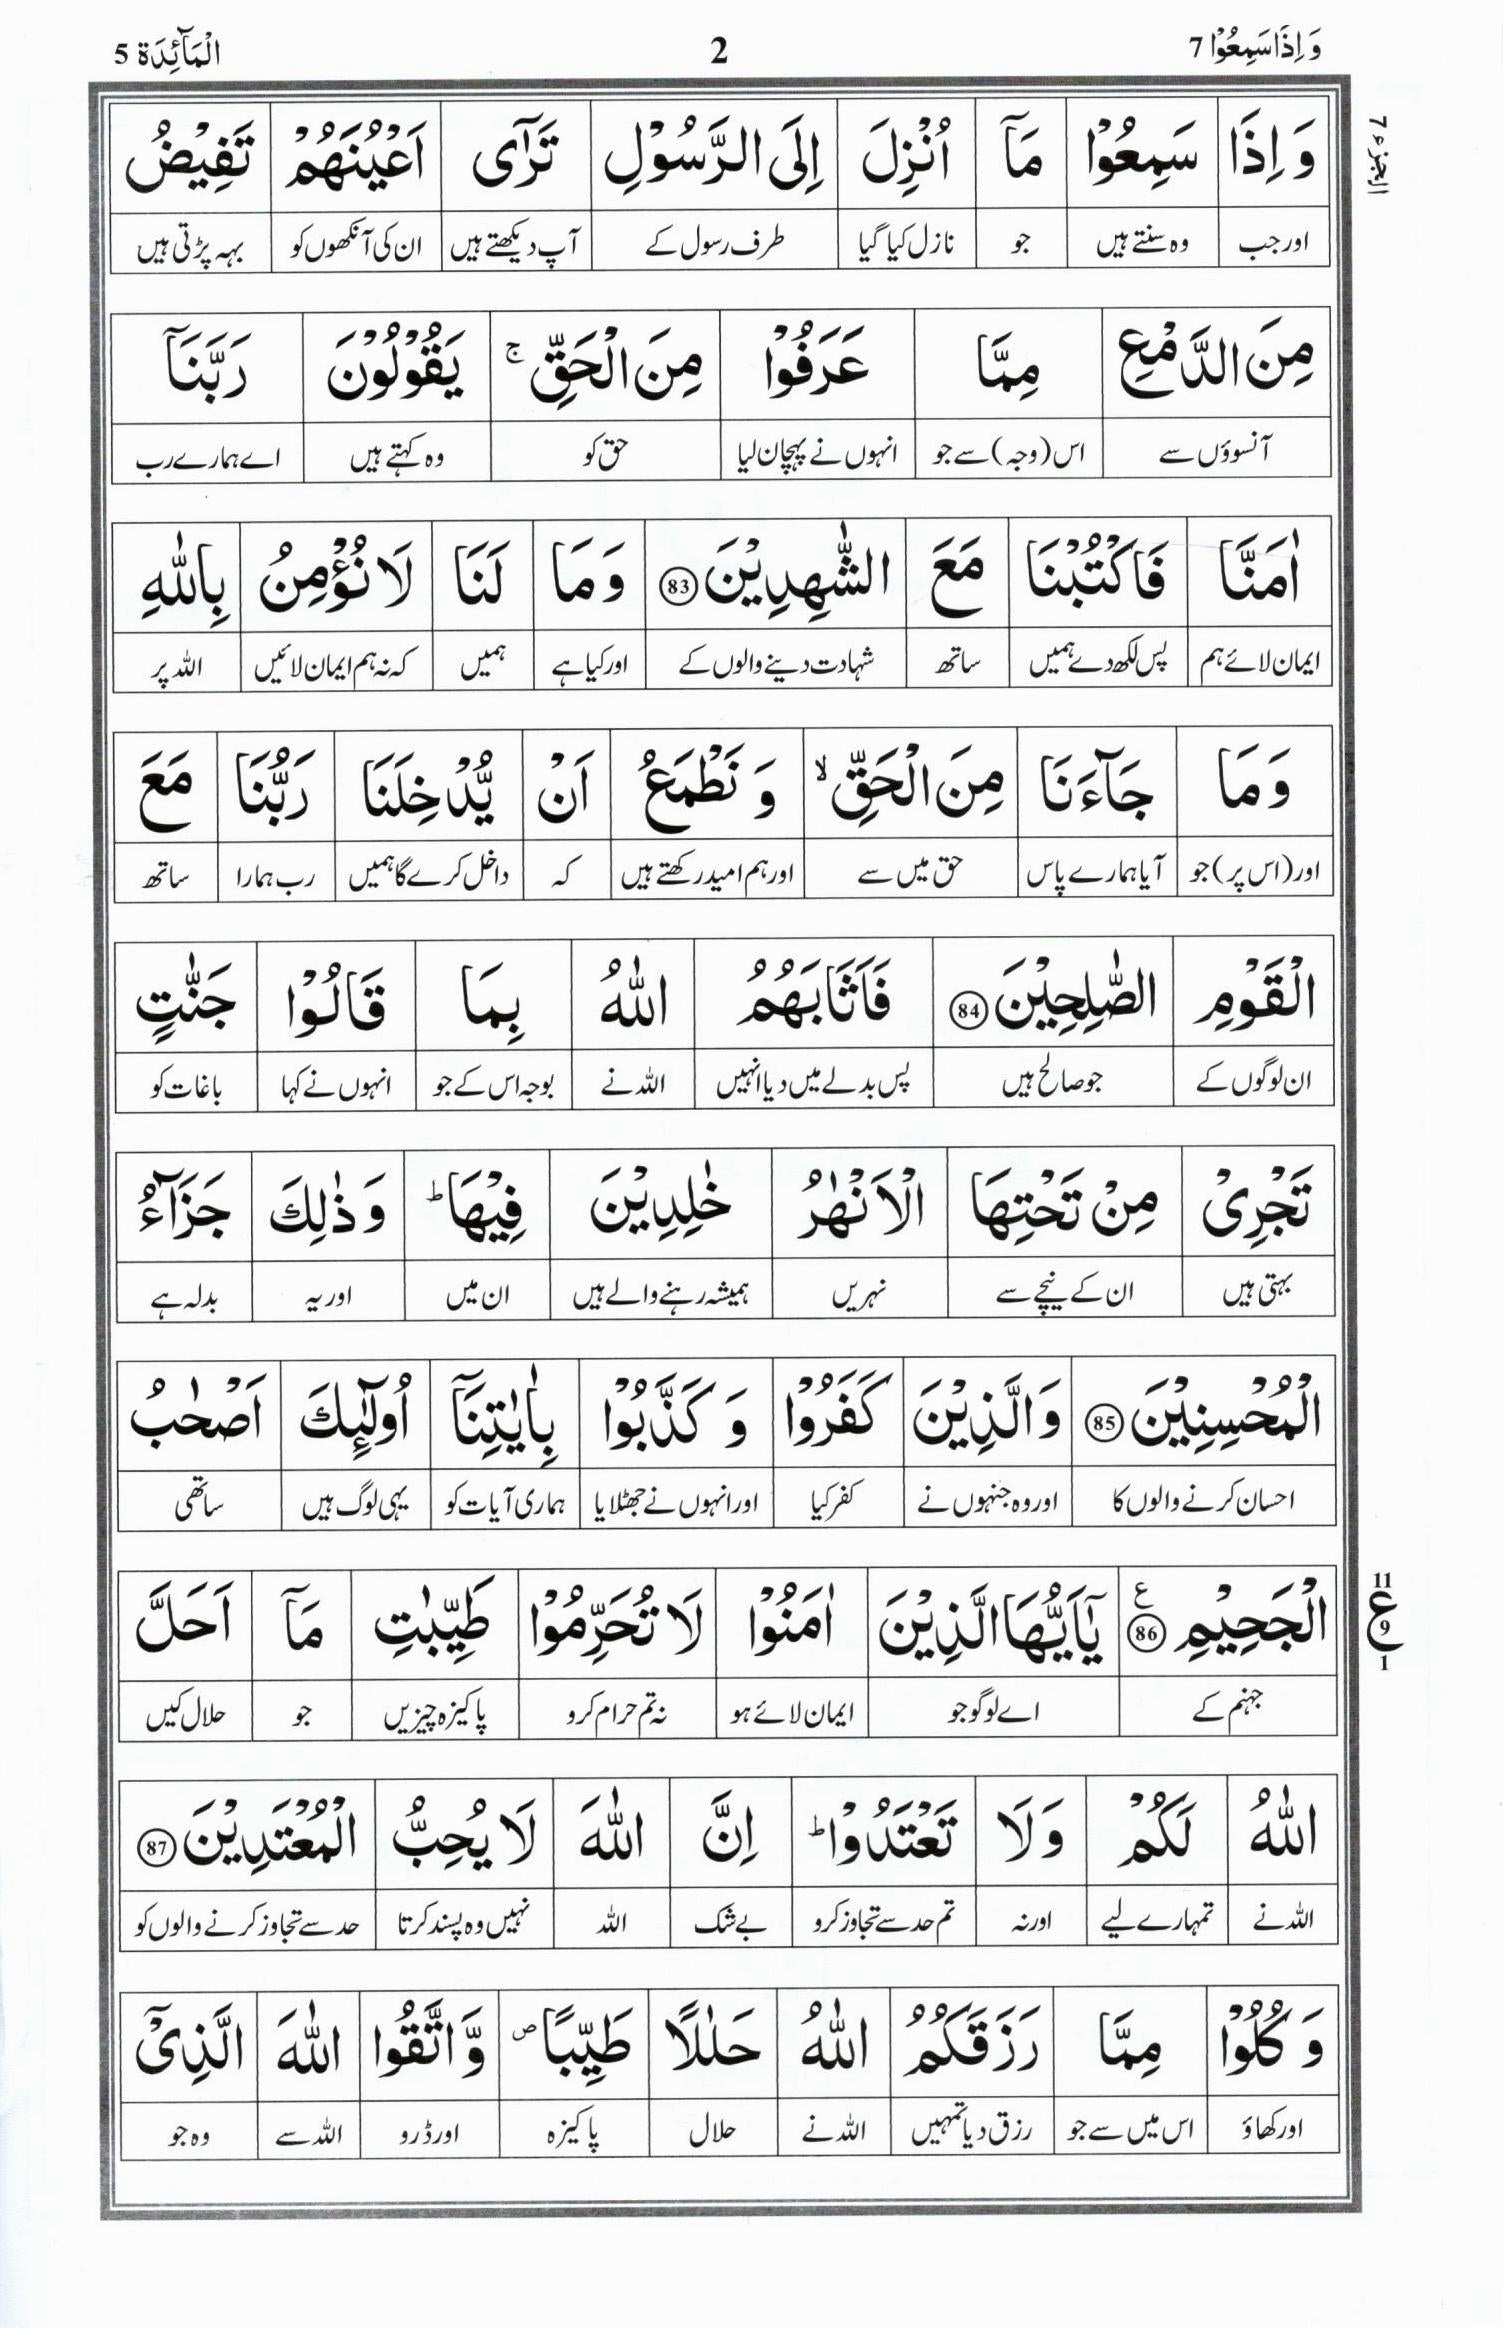 وَ اِذَا سَمِعُوْا 7 2 الْمَآئِدَة 5
الجزء ٧
وَ اِذَا سَمِعُوْا مَآ اُنْزِلَ اِلَى الرَّسُوْلِ تَرٰٓى اَعْيُنَهُمْ تَفِيْضُ
اور جب وہ سنتے ہیں جو نازل کیا گیا طرف رسول کے آپ دیکھتے ہیں ان کی آنکھوں کو بہہ پڑتی ہیں
مِنَ الدَّمْعِ مِمَّا عَرَفُوْا مِنَ الْحَقِّ ۚ يَقُوْلُوْنَ رَبَّنَآ
آنسوؤں سے اس (وجہ) سے جو انہوں نے پہچان لیا حق کو وہ کہتے ہیں اے ہمارے رب
اٰمَنَّا فَاكْتُبْنَا مَعَ الشّٰهِدِيْنَ 83 وَ مَا لَنَا لَا نُؤْمِنُ بِاللّٰهِ
ایمان لائے ہم پس لکھ دے ہمیں ساتھ شہادت دینے والوں کے اور کیا ہے ہمیں کہ نہ ہم ایمان لائیں اللہ پر
وَ مَا جَآءَنَا مِنَ الْحَقِّ ۙ وَ نَطْمَعُ اَنْ يُّدْخِلَنَا رَبُّنَا مَعَ
اور (اس پر) جو آیا ہمارے پاس حق میں سے اور ہم امید رکھتے ہیں کہ داخل کرے گا ہمیں رب ہمارا ساتھ
الْقَوْمِ الصّٰلِحِيْنَ 84 فَاَثَابَهُمُ اللّٰهُ بِمَا قَالُوْا جَنّٰتٍ
ان لوگوں کے جو صالح ہیں پس بدلے میں دیا انہیں اللہ نے بوجہ اس کے جو انہوں نے کہا باغات کو
تَجْرِيْ مِنْ تَحْتِهَا الْاَنْهٰرُ خٰلِدِيْنَ فِيْهَا ؕ وَ ذٰلِكَ جَزَآءُ
بہتی ہیں ان کے نیچے سے نہریں ہمیشہ رہنے والے ہیں ان میں اور یہ بدلہ ہے
الْمُحْسِنِيْنَ 85 وَ الَّذِيْنَ كَفَرُوْا وَ كَذَّبُوْا بِاٰيٰتِنَآ اُولٰٓئِكَ اَصْحٰبُ
احسان کرنے والوں کا اور وہ جنہوں نے کفر کیا اور انہوں نے جھٹلایا ہماری آیات کو یہی لوگ ہیں ساتھی
الْجَحِيْمِ 86 ع يٰٓاَيُّهَا الَّذِيْنَ اٰمَنُوْا لَا تُحَرِّمُوْا طَيِّبٰتِ مَآ اَحَلَّ
11 ع 9 1
جہنم کے اے لوگو جو ایمان لائے ہو نہ تم حرام کرو پاکیزہ چیزیں جو حلال کیں
اللّٰهُ لَكُمْ وَ لَا تَعْتَدُوْا ؕ اِنَّ اللّٰهَ لَا يُحِبُّ الْمُعْتَدِيْنَ 87
اللہ نے تمہارے لیے اور نہ تم حد سے تجاوز کرو بے شک اللہ نہیں وہ پسند کرتا حد سے تجاوز کرنے والوں کو
وَ كُلُوْا مِمَّا رَزَقَكُمُ اللّٰهُ حَلٰلًا طَيِّبًا ۪ وَّ اتَّقُوا اللّٰهَ الَّذِيْٓ
اور کھاؤ اس میں سے جو رزق دیا تمہیں اللہ نے حلال پاکیزہ اور ڈرو اللہ سے وہ جو